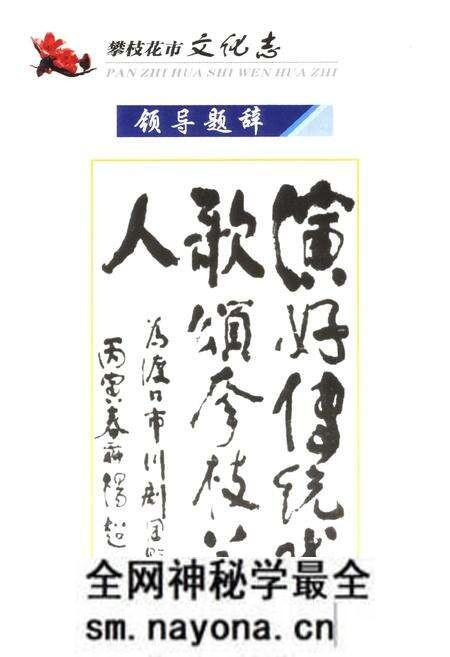 攀枝花市文化志
PAN ZHI HUA SHI WEN HUA ZHI
领导题辞
演好传统
歌颂攀枝
人
为渡口市川剧团
丙寅春 杨超
全网神秘学最全
sm.nayona.cn